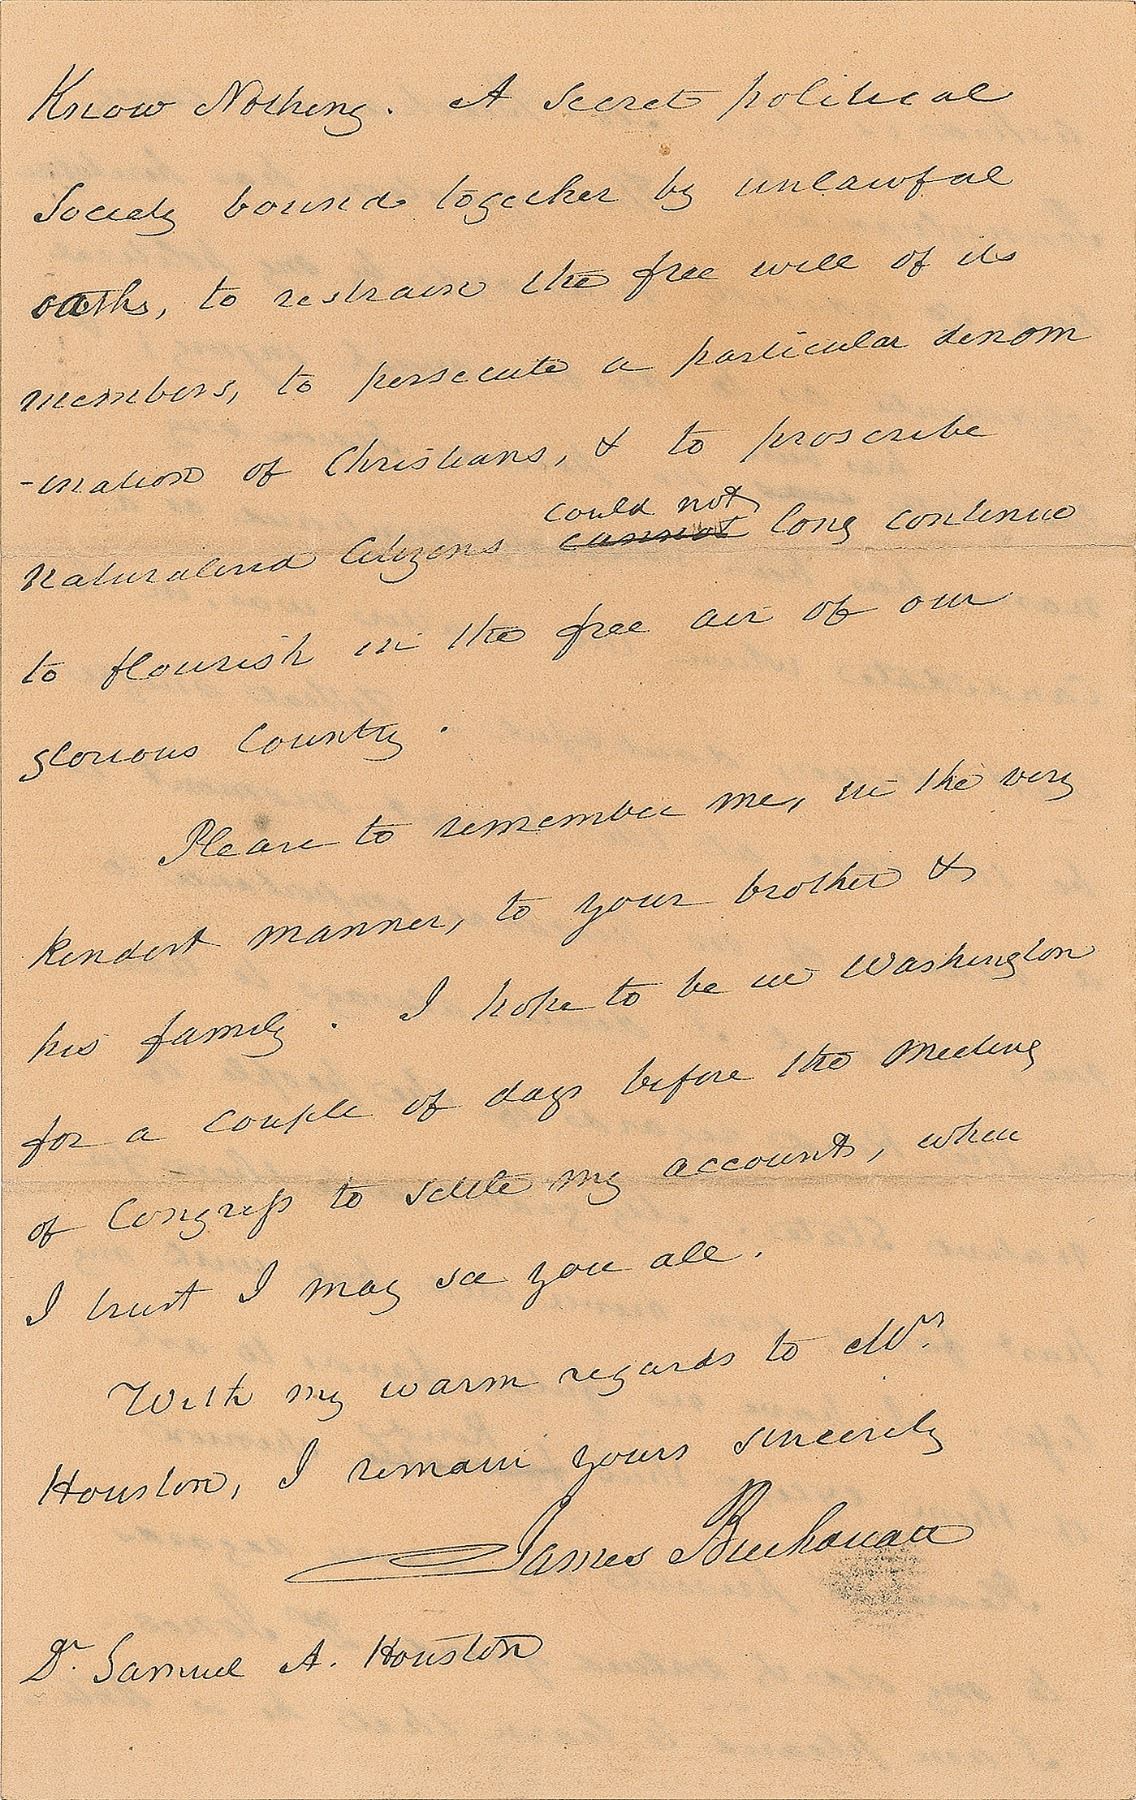 Know Nothing. A secret political
Society bound together by unlawful
oaths, to restrain the free will of its
members, to persecute a particular denom
-ination of Christians, & to proscribe
could not
naturalised Citizens cannot long continue
to flourish in the free air of our
glorious Country.
Please to remember me, in the very
kindest manner, to your brother &
his family. I hope to be in Washington
for a couple of days before the meeting
of Congress to settle my accounts, when
I trust I may see you all.
With my warm regards to Mrs
Houston, I remain yours sincerely
James Buchanan
Dr Samuel A. Houston